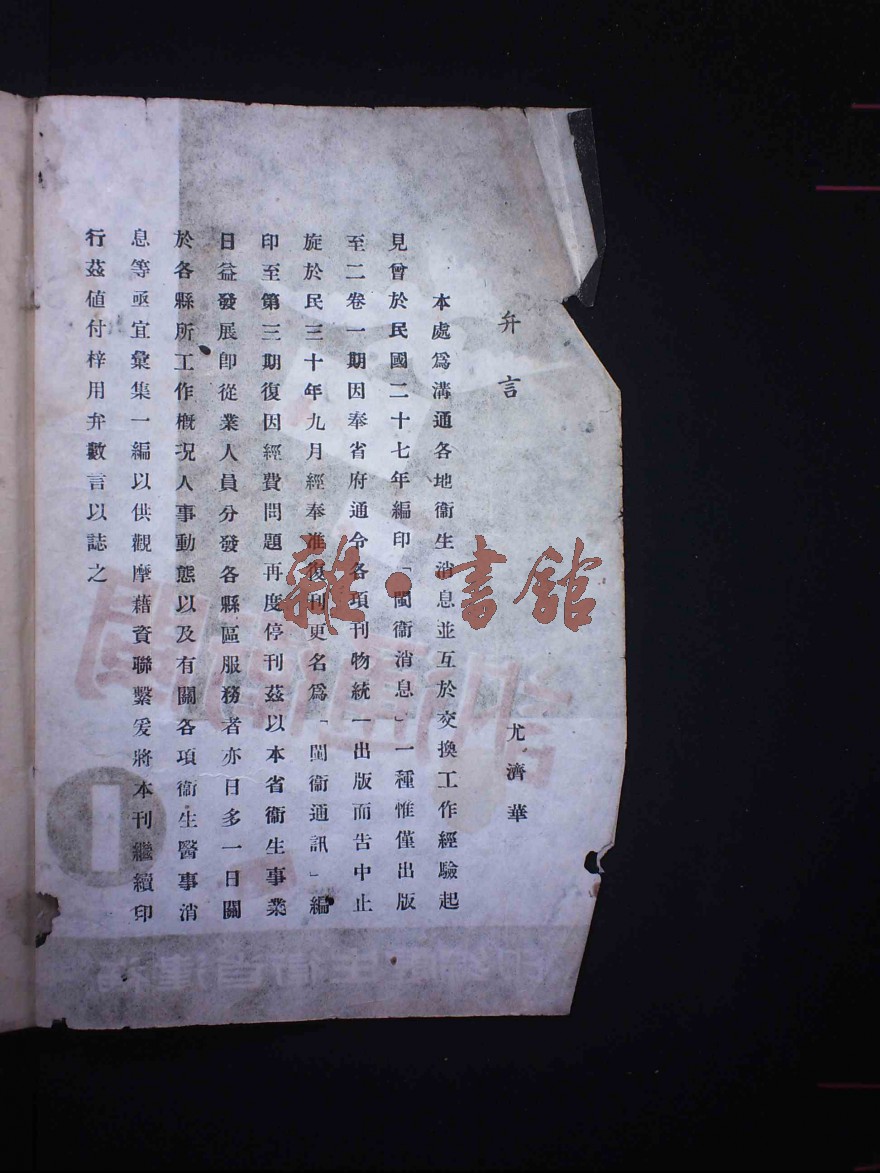 弁言
尤濟華
本處爲溝通各地衞生消息並互於交換工作經驗起
見曾於民國二十七年編印「閩衞消息」一種惟僅出版
至二卷一期因奉省府通令各項刊物統一出版而吿中止
旋於民三十年九月經奉准復刊更名爲「閩衞通訊」編
印至第三期復因經費問題再度停刊茲以本省衞生事業
日益發展卽從業人員分發各縣區服務者亦日多一日關
於各縣所工作概况人事動態以及有關各項衞生醫事消
息等亟宜彙集一編以供觀摩藉資聯繫爰將本刊繼續印
行茲値付梓用弁數言以誌之
雜·書館